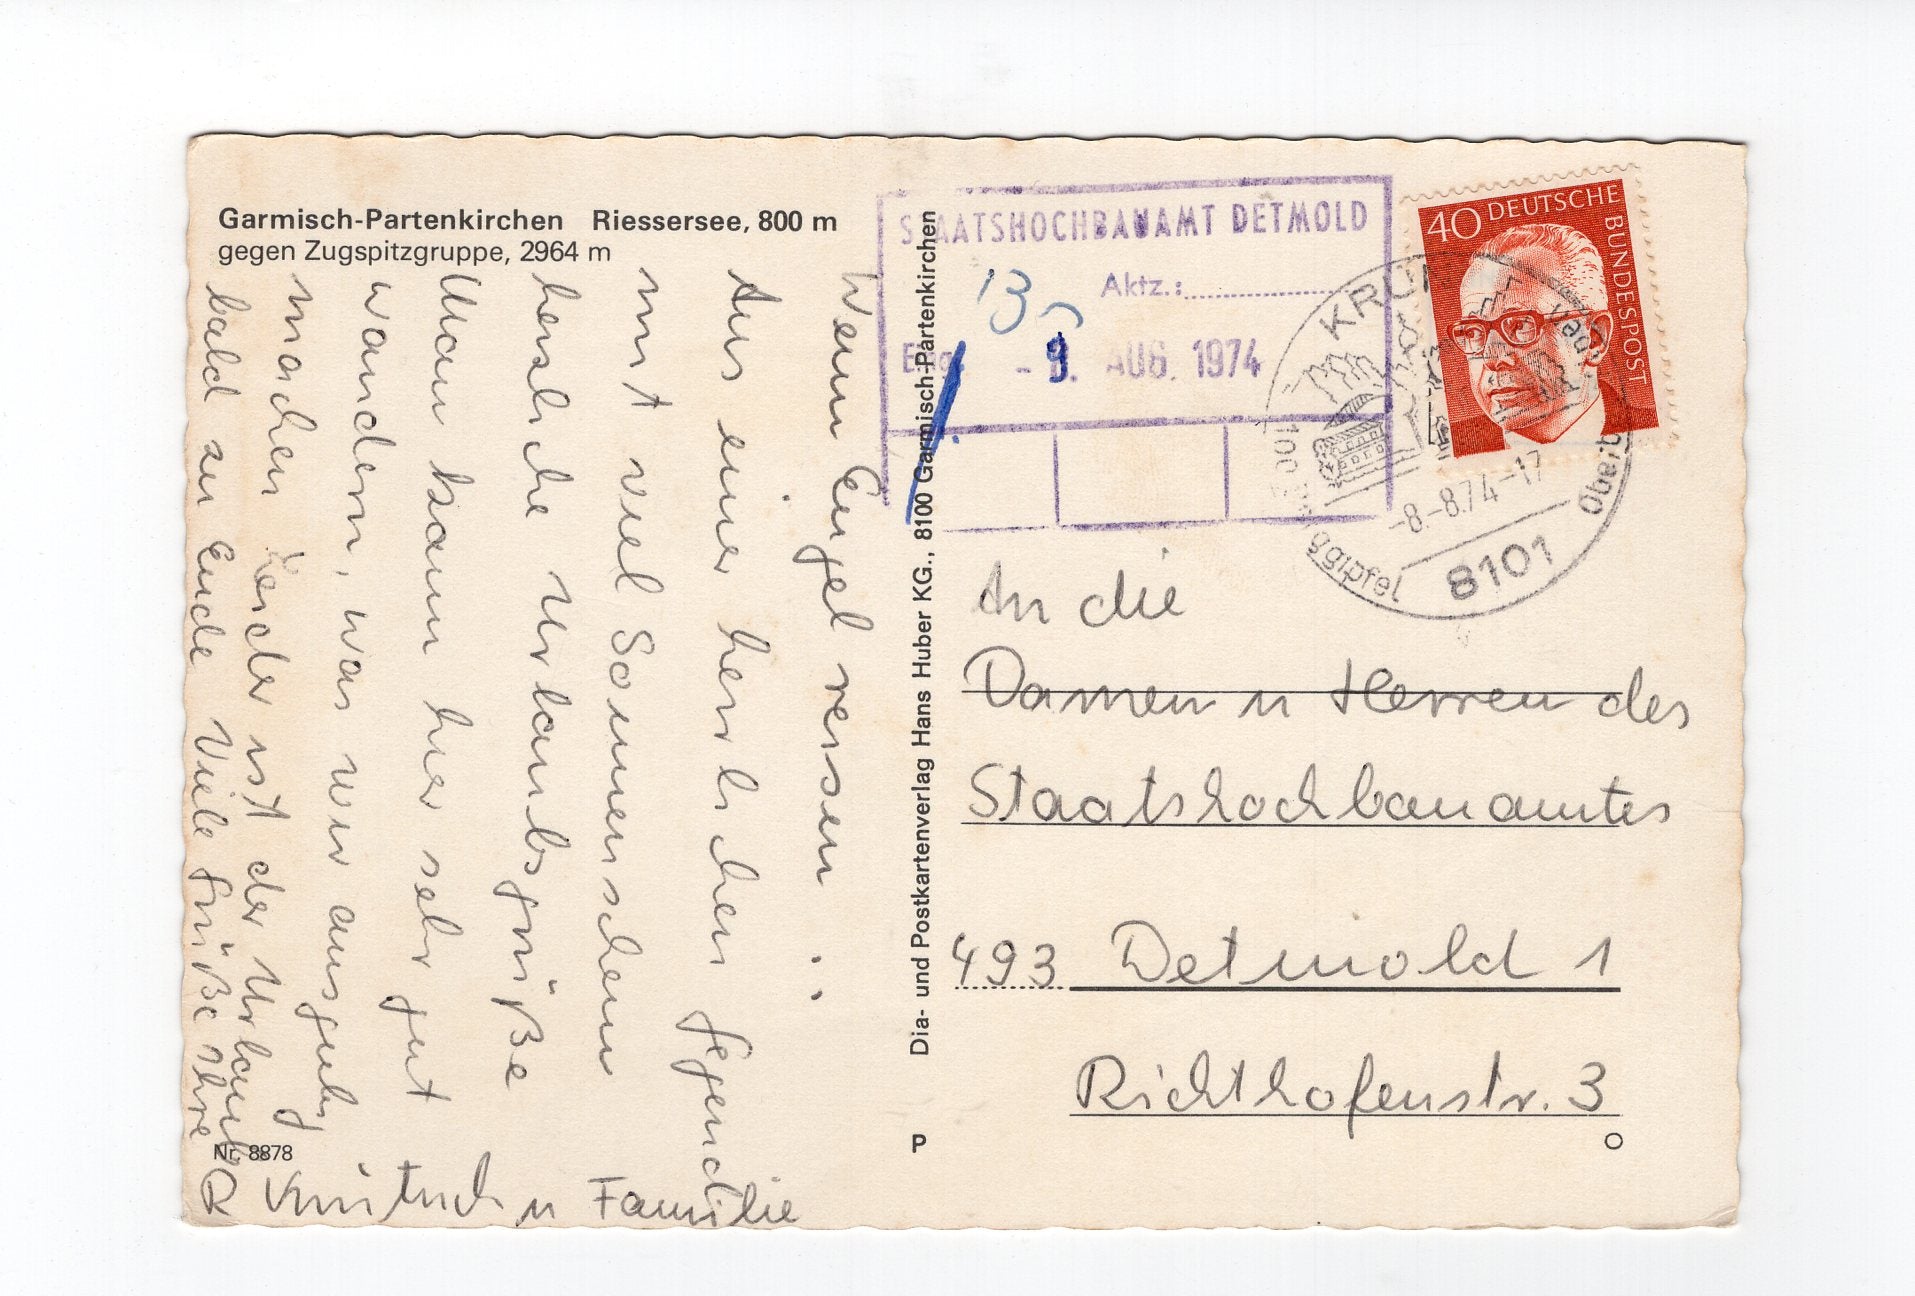 Garmisch-Partenkirchen Riessersee, 800 m
gegen Zugspitzgruppe, 2964 m
Wenn Engel reisen ..
Aus einer herrlichen Gegend
mit viel Sonnenschein
herzliche Urlaubsgrüße
Man kann hier sehr gut
wandern, was wir ausgiebig
machen. Leider ist der Urlaub
bald zu Ende Viele Grüße Ihre
R u Familie
Nr. 8878
Dia- und Postkartenverlag Hans Huber KG., 8100 Garmisch-Partenkirchen
P
STAATSHOCHBAUAMT DETMOLD
Aktz.:
Eing. - 9. AUG. 1974
40 DEUTSCHE BUNDESPOST
KRÜN
-8.-8.74-17
8101
An die
Damen u Herren des
Staatshochbauamtes
493 Detmold 1
Richthofenstr. 3